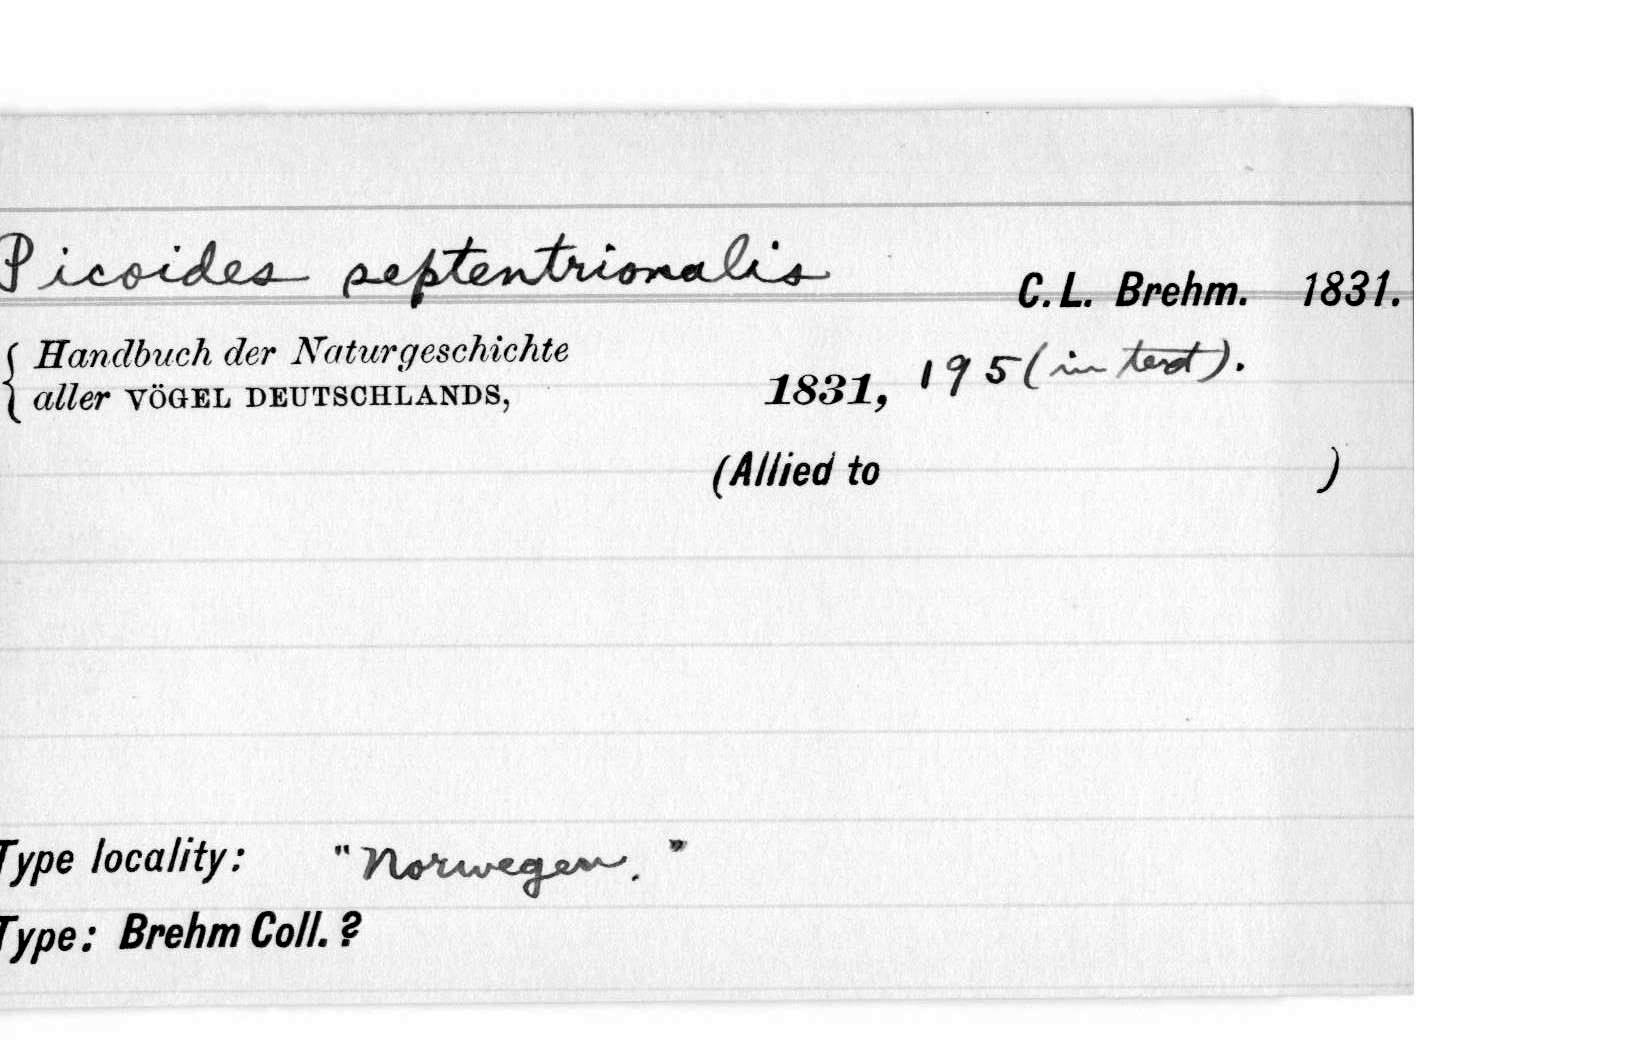 Picoides septentrionalis C. L. Brehm. 1831.
Handbuch der Naturgeschichte
aller VÖGEL DEUTSCHLANDS, 1831, 195 (in text).
(Allied to )
Type locality: "Norwegen."
Type: Brehm Coll. ?